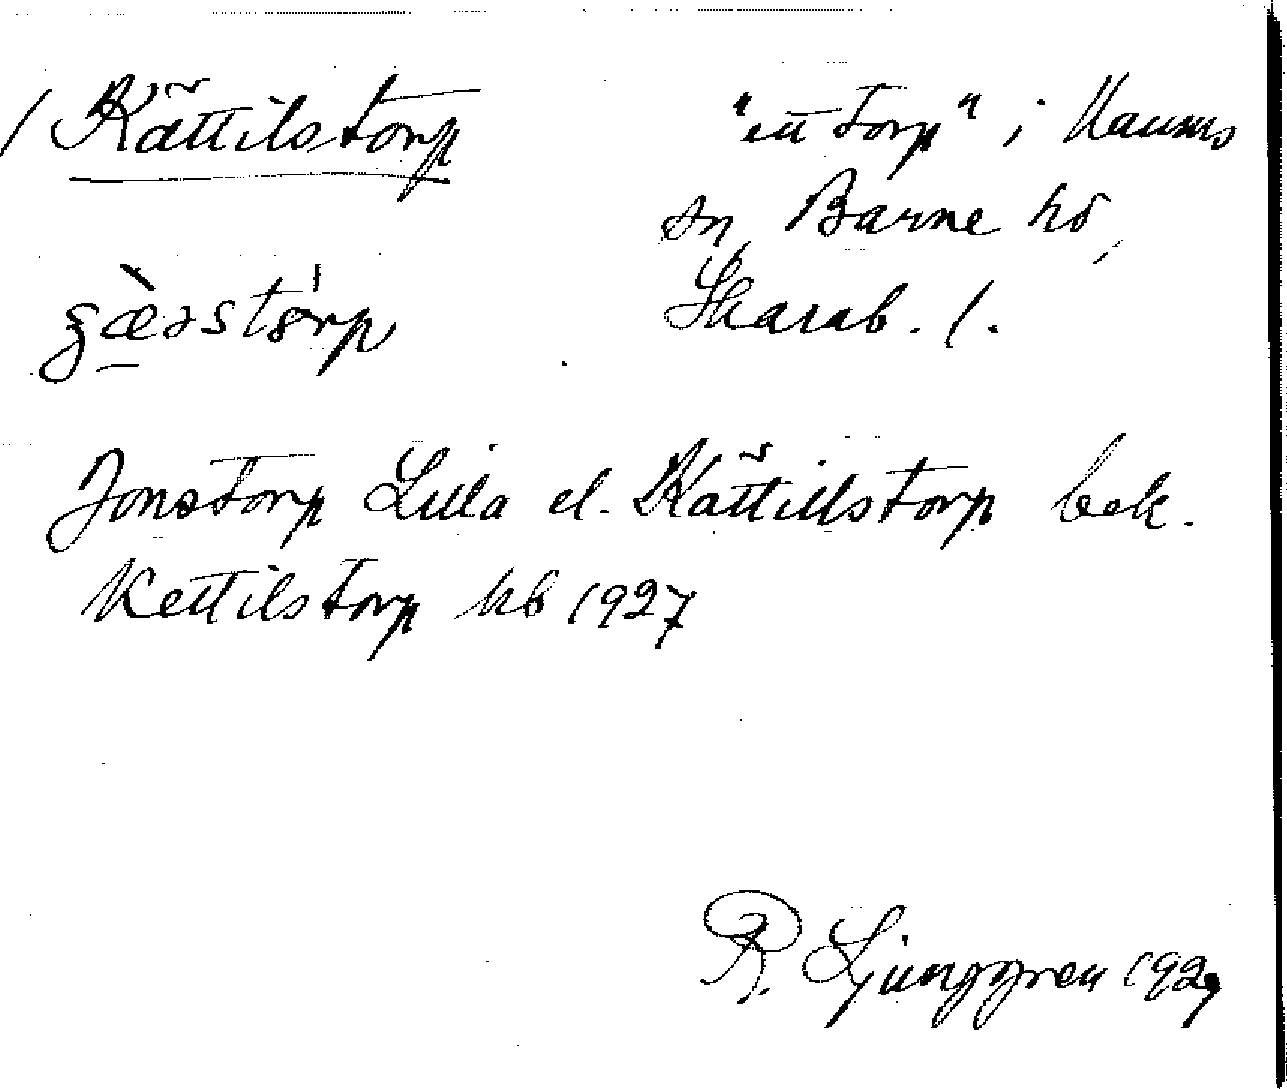 / Kättilstorp
"ett torp" i Naums
sn, Barne hd,
Skarab. l.
Jonstorp Lilla el. Kättillstorp bek.
Kettilstorp kb 1927
R. Ljunggren 1927